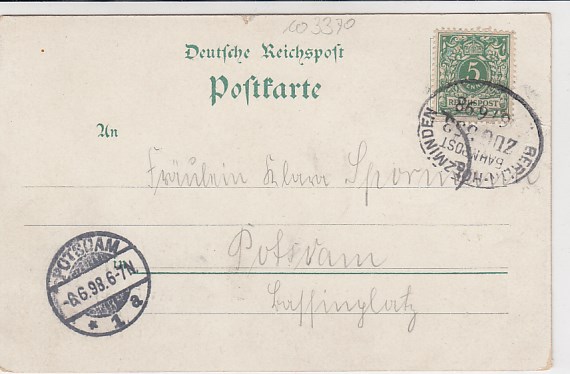 103370
Deutsche Reichspost
Postkarte
5
REICHSPOST
An
BERLIN-HOLZMINDEN
BAHNPOST
ZUG
6/6 98
Fräulein Klara
Potsdam
POTSDAM
-6.6.98.6-7N.
* 1. a
Bassinplatz